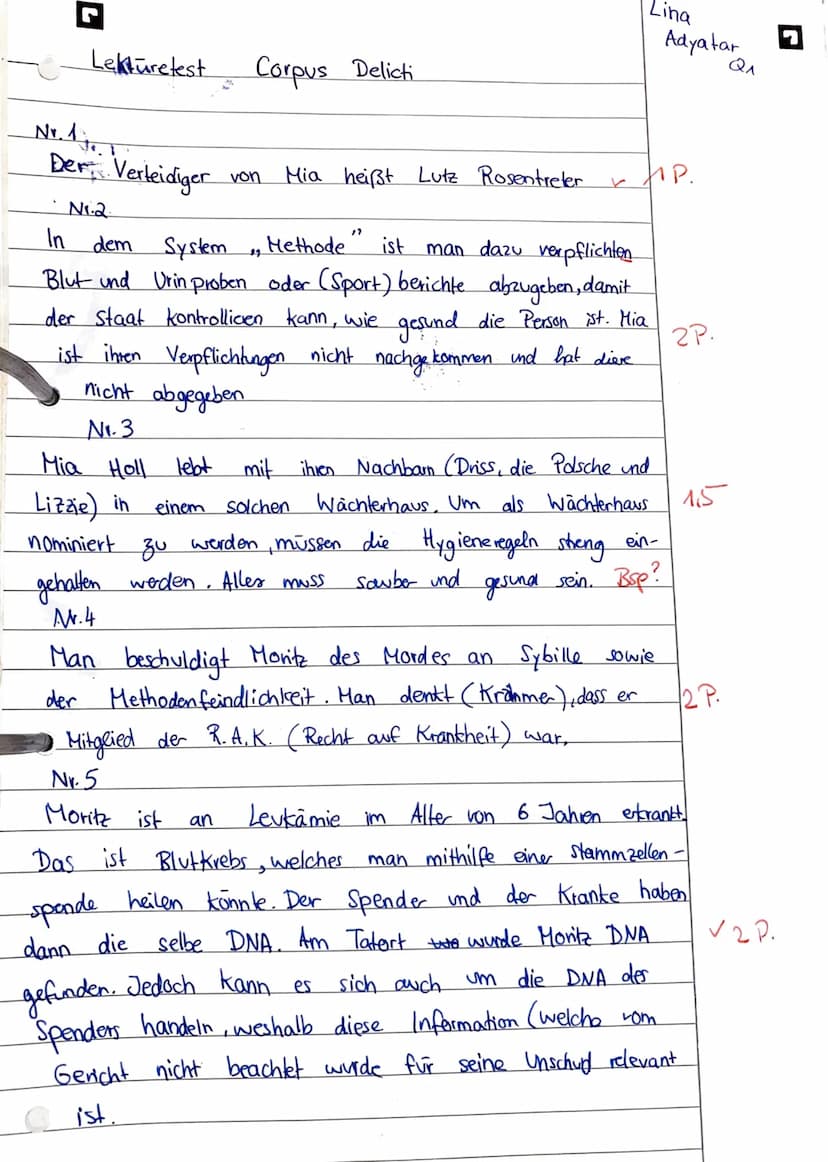 Lina
Adyatar
Q1
Lektüretest Corpus Delicti
Nr. 1
Der Verteidiger von Mia heißt Lutz Rosentreter ✓ 1P.
Nr. 2
In dem System „Methode" ist man dazu verpflichten
Blut und Urinproben oder (Sport)berichte abzugeben, damit
der Staat kontrollieren kann, wie gesund die Person ist. Mia
2P.
ist ihren Verpflichtungen nicht nachgekommen und hat diese
nicht abgegeben
Nr. 3
Mia Holl lebt mit ihren Nachbarn (Driss, die Polsche und
Lizzie) in einem solchen Wächterhaus. Um als Wächterhaus 1,5
nominiert zu werden, müssen die Hygieneregeln streng ein-
gehalten werden. Alles muss sauber und gesund sein. Bsp?
Nr. 4
Man beschuldigt Moritz des Mordes an Sybille sowie
der Methodenfeindlichkeit. Man denkt (Kramer), dass er 2P.
Mitglied der R.A.K. (Recht auf Krankheit) war.
Nr. 5
Moritz ist an Leukämie im Alter von 6 Jahren erkrankt.
Das ist Blutkrebs, welches man mithilfe einer Stammzellen-
spende heilen könnte. Der Spender und der Kranke haben
dann die selbe DNA. Am Tatort wurde Moritz DNA ✓ 2P.
gefunden. Jedoch kann es sich auch um die DNA des
Spenders handeln, weshalb diese Information (welche vom
Gericht nicht beachtet wurde für seine Unschud relevant
ist.